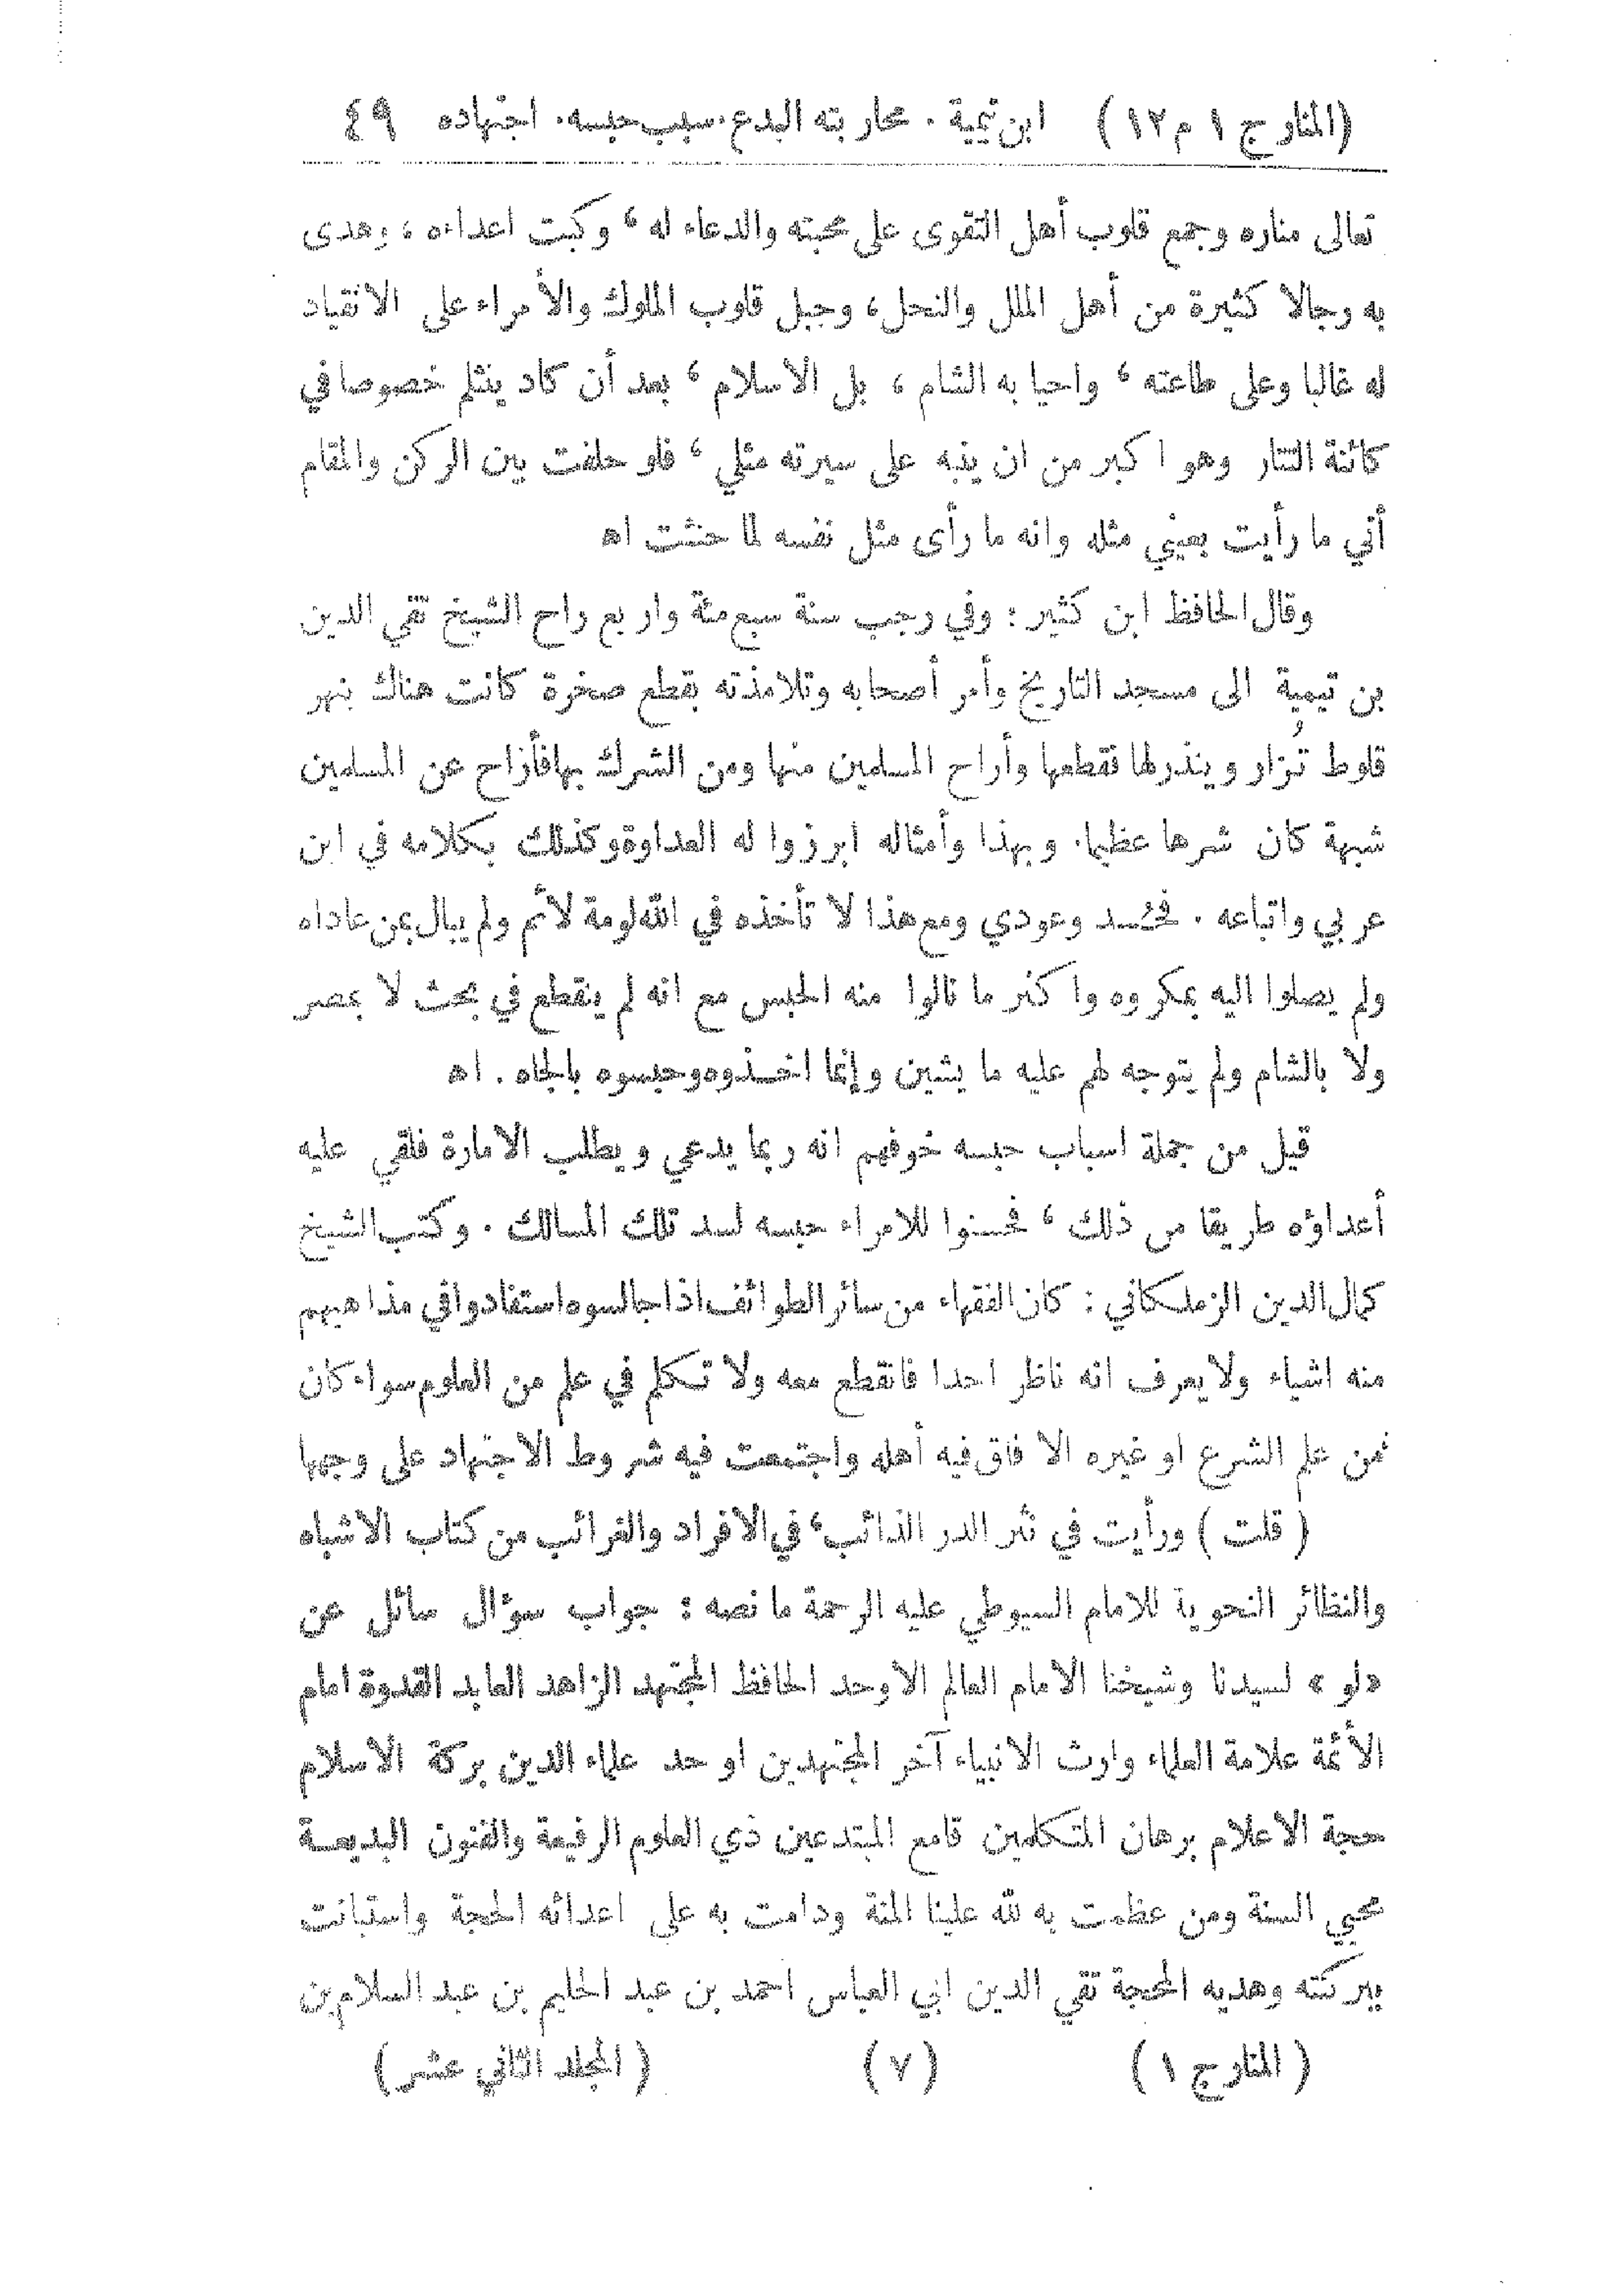 (المنارج ١ م ١٢) ابن تيمية . محاربته البدع. سبب حبسه. اجتهاده ٤٩
تعالى مناره وجمع قلوب أهل التقوى على محبته والدعاء له ، وكبت اعداءه ، وهدى
به رجالا كثيرة من أهل الملل والنحل ، وجبل قلوب الملوك والأمراء على الانقياد
له غالبا وعلى طاعته ، واحيا به الشام ، بل الاسلام ، بعد أن كاد ينثلم خصوصا في
كائنة التتار وهو اكبر من ان ينبه على سيرته مثلي ، فلو حلفت بين الركن والمقام
أني ما رأيت بعيني مثله وانه ما رأى مثل نفسه لما حنثت اه
وقال الحافظ ابن كثير : وفي رجب سنة سبع مئة واربع راح الشيخ تقي الدين
بن تيمية الى مسجد التاريخ وأمر أصحابه وتلامذته بقطع صخرة كانت هناك بنهر
قلوط تُزار وينذر لها فقطعها وأراح المسلمين منها ومن الشرك بها فأزاح عن المسلمين
شبهة كان شرها عظيما . وبهذا وأمثاله ابرزوا له العداوة وكذلك بكلامه في ابن
عربي واتباعه . فحُسد وعودي ومع هذا لا تأخذه في الله لومة لائم ولم يبال بمن عاداه
ولم يصلوا اليه بمكروه واكثر ما نالوا منه الحبس مع انه لم ينقطع في بحث لا بمصر
ولا بالشام ولم يتوجه لهم عليه ما يشين وإنما اخذوه وحبسوه بالجاه . اه
قيل من جملة اسباب حبسه خوفهم انه ربما يدعي ويطلب الامارة فلقي عليه
أعداؤه طريقا من ذلك ، فحسنوا للامراء حبسه لسد تلك المسالك . وكتب الشيخ
كمال الدين الزملكاني : كان الفقهاء من سائر الطوائف اذا جالسوه استفادوا في مذاهبهم
منه اشياء ولا يعرف انه ناظر احدا فانقطع معه ولا تكلم في علم من العلوم سواء كان
من علم الشرع او غيره الا فاق فيه أهله واجتمعت فيه شروط الاجتهاد على وجهها
( قلت ) ورأيت في نثر الدر الذائب ، في الافراد والغرائب من كتاب الاشباه
والنظائر النحوية للامام السيوطي عليه الرحمة ما نصه : جواب سؤال سائل عن
«لو» لسيدنا وشيخنا الامام العالم الاوحد الحافظ المجتهد الزاهد العابد القدوة امام
الأئمة علامة العلماء وارث الانبياء آخر المجتهدين اوحد علماء الدين بركة الاسلام
حجة الاعلام برهان المتكلمين قامع المبتدعين ذي العلوم الرفيعة والفنون البديعة
محيي السنة ومن عظمت به لله علينا المنة ودامت به على اعدائه الحجة واستبانت
ببركته وهديه المحجة تقي الدين ابي العباس احمد بن عبد الحليم بن عبد السلام بن
( المنارج ١ ) (٧) ( المجلد الثاني عشر )